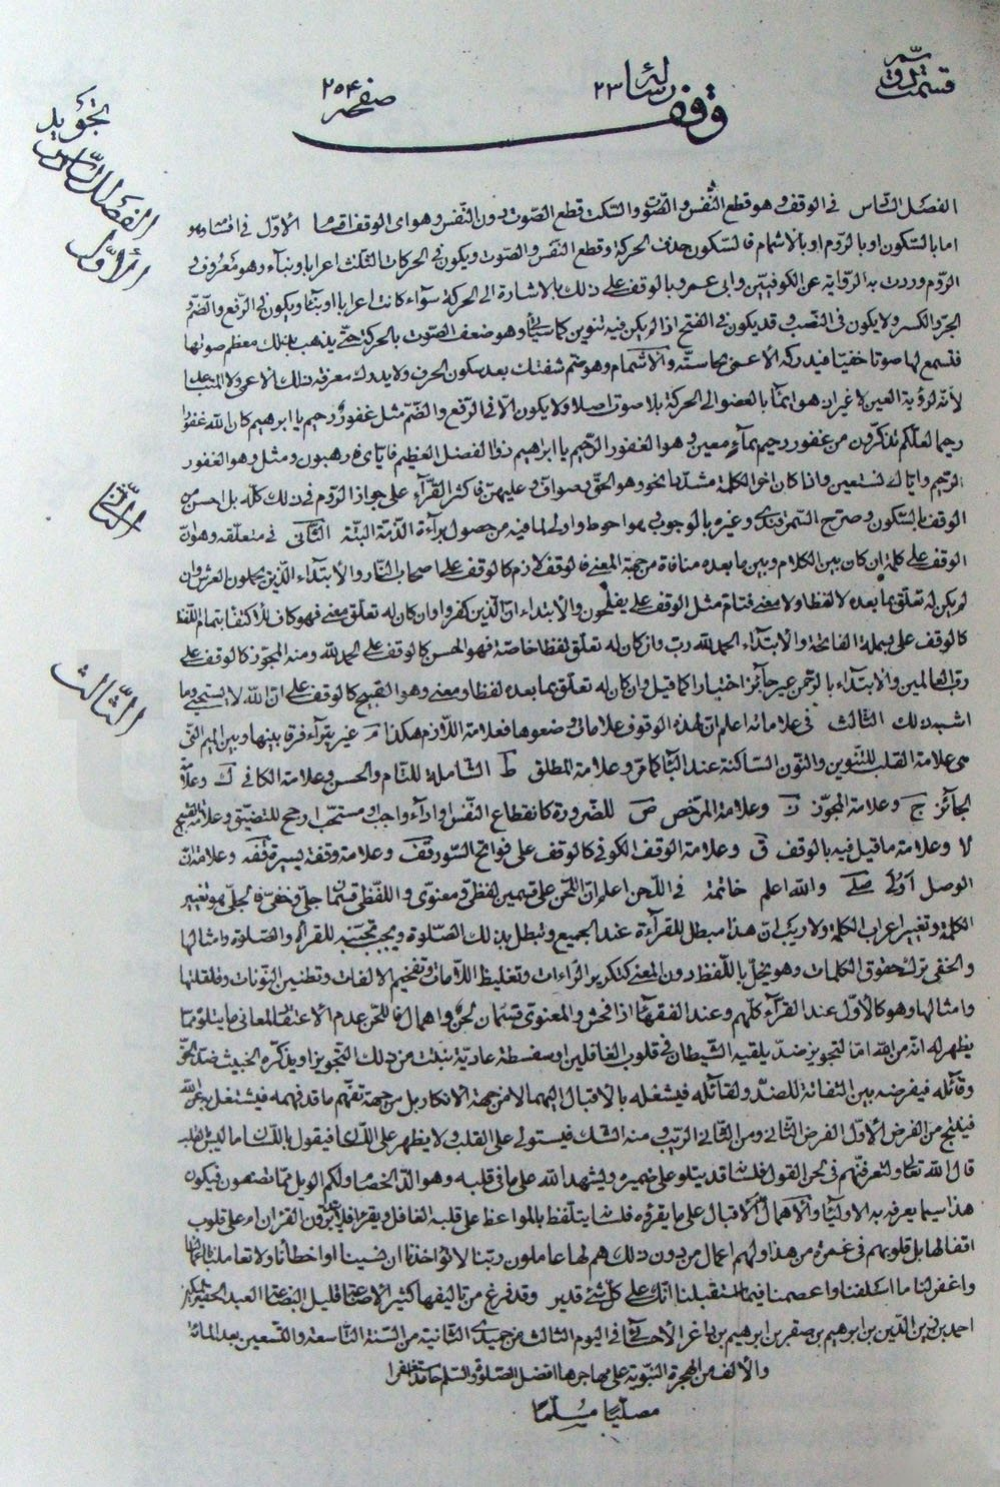 قسمت سوم
رسالة ٢٣
صفحه ٢٥۴
وقف
تجويد
الفصل السادس
الأول
الفصل السادس في الوقف وهو قطع النفس والصوت والسكت قطع الصوت بدون النفس وهو اى الوقف اقسام الاول في اقسامه وهو
اما بالسكون او بالروم او بالاشمام فالسكون حذف الحركة وقطع النفس والصوت ويكون في الحركات الثلث اعرابا وبناء وهو معروف و
الروم وردت به الرواية عن الكوفيين وابى عمرو بالوقف على ذلك بالاشارة الى الحركة سواء كانت اعرابا او بناء ويكون في الرفع والضم و
الجر والكسر ولا يكون في النصب وقد يكون في الفتح اذا لم يكن فيه تنوين كما سيأتى وهو ضعف الصوت بالحركة حتى يذهب بذلك معظم صوتها
فتسمع لها صوتا خفيا فيدركه الأعمى بحاسته والاشمام وهو ضم شفتيك بعد سكون الحرف ولا يدرك معرفة ذلك الأعمى
لأنه لرؤية العين لا غير اذ هو ايماء بالعضو الى الحركة بلا صوت اصلا ولا يكون الا في الرفع والضم مثل غفور رحيم يا ابرهيم كان الله غفورا
رحيما لعلكم تذكرون من غفور رحيم بماء معين وهو الغفور الرحيم يا ابراهيم ذو الفضل العظيم فاياى فارهبون ومثل وهو الغفور
الرحيم واياك نستعين واذا كان اخر الكلمة مشددا نحو وهو الحق وصواف وعليهن فاكثر القراء على جواز الروم في ذلك كله بل احسن من
الثانى
الوقف بالسكون وصرح السمرقندى وغيره بالوجوب وهو احوط واولى لما فيه من حصول براءة الذمة البتة الثانى في متعلقه وهو ان
الوقف على كلمة ان كان بين الكلام وبين ما بعده منافاة من جهة المعنى فالوقف لازم كالوقف على اصحاب النار والابتداء الذين يحملون العرش وان
لم يكن له تعلق بما بعده لا لفظا ولا معنى فتام مثل الوقف على يفلحون والابتداء ان الذين كفروا وان كان له تعلق معنى فهو كاف للاكتفاء بتمام اللفظ
كالوقف على بسملة الفاتحة والابتداء الحمد لله رب وان كان له تعلق لفظا خاصة فهو الحسن كالوقف على الحمد لله ومنه المجوز كالوقف على
الثالث
رب العالمين والابتداء بالرحمن غير جائز اختيارا كما قيل وان كان له تعلق بما بعده لفظا ومعنى وهو القبيح كالوقف على ان الله لا يستحيى وما
اشبه ذلك الثالث في علاماته اعلم ان لهذه الوقوف علامات وضعوها فعلامة اللازم هكذا م غير بتراء فرقا بينها وبين الميم التى
هى علامة القلب للتنوين والنون الساكنة عند الباء كما مر وعلامة المطلق ط الشاملة للتام والحسن وعلامة الكافى ك وعلامة
الجائز ج وعلامة المجوز ز وعلامة المرخص ص للضرورة كانقطاع النفس او اداء واجب او مستحب ارجح للتضيق وعلامة القبيح
لا وعلامة ما قيل فيه بالوقف ق وعلامة الوقف الكوفى كالوقف على فواتح السور قف وعلامة وقفة يسيرة قفه وعلامة ان
الوصل اولى صلى والله اعلم خاتمة في اللحن اعلم ان اللحن على قسمين لفظى ومعنوى واللفظى قسمان جلى وخفى فالجلى هو تغيير
الكلمة وتغيير اعراب الكلمة ولا ريب ان هذا مبطل للقراءة عند الجميع وتبطل بذلك الصلوة ويجب تجنبه للقراءة والصلوة وامثالها
والخفى ترك حقوق الكلمات وهو يخل باللفظ دون المعنى كتكرير الراءات وتغليظ اللامات وتفخيم الالفات وتطنين النونات وقلقلتها
وامثالها وهو كالأول عند القراء كلهم وعند الفقهاء اذا فحش والمعنوى قسمان لحن واهمال فاللحن عدم الاعتقاد لمعانى ما يتلو مما
يظهر له انه من الله اما لتجويز ضد يلقيه الشيطان في قلوب الغافلين او سفسطة عادية ينبعث من ذلك التجويز او يذكره الخبيث ضد الحق
وقائله فيفرضه بين التفاته للضد ولقائله فيشغله بالاقبال اليهما لا من جهة الانكار بل من جهة تفهم ما قد فهمه فيشتغل به عن الله
فينتج من الفرض الأول الفرض الثانى ومن الثانى الريب ومنه الشك فيستولى على القلب ولا يظهر على الذى فيقول باللسان ما ليس في قلبه
قال الله تعالى ولتعرفنهم في لحن القول فلسانه قد يتلو على ضميره ويشهد الله على ما في قلبه وهو الد الخصام ولكم الويل مما تصفون فيكون
هذا سيما يعرفه به الاولياء والاهمال الاقبال على ما يقرؤه فلسانه يتلفظ بالمواعظ على قلبه الغافل ويقرء افلا يتدبرون القران ام على قلوب
اقفالها بل قلوبهم في غمرة من هذا ولهم اعمال من دون ذلك هم لها عاملون ربنا لا تؤاخذنا ان نسينا او اخطأنا ولا تعاملنا باعمالنا
واغفر لنا ما اسلفنا واعصمنا فيما استقبلنا انك على كل شئ قدير وقد فرغ من تأليفها كثير الاضاعة قليل البضاعة العبد الحقير المسكين
احمد بن زين الدين بن ابرهيم بن صقر بن ابرهيم بن داغر الاحسائى في اليوم الثالث من جميدى الثانية من السنة التاسعة والتسعين بعد المائة
والألف من الهجرة النبوية على مهاجرها افضل الصلوة والسلم حامدا مستغفرا
مصليا مسلما